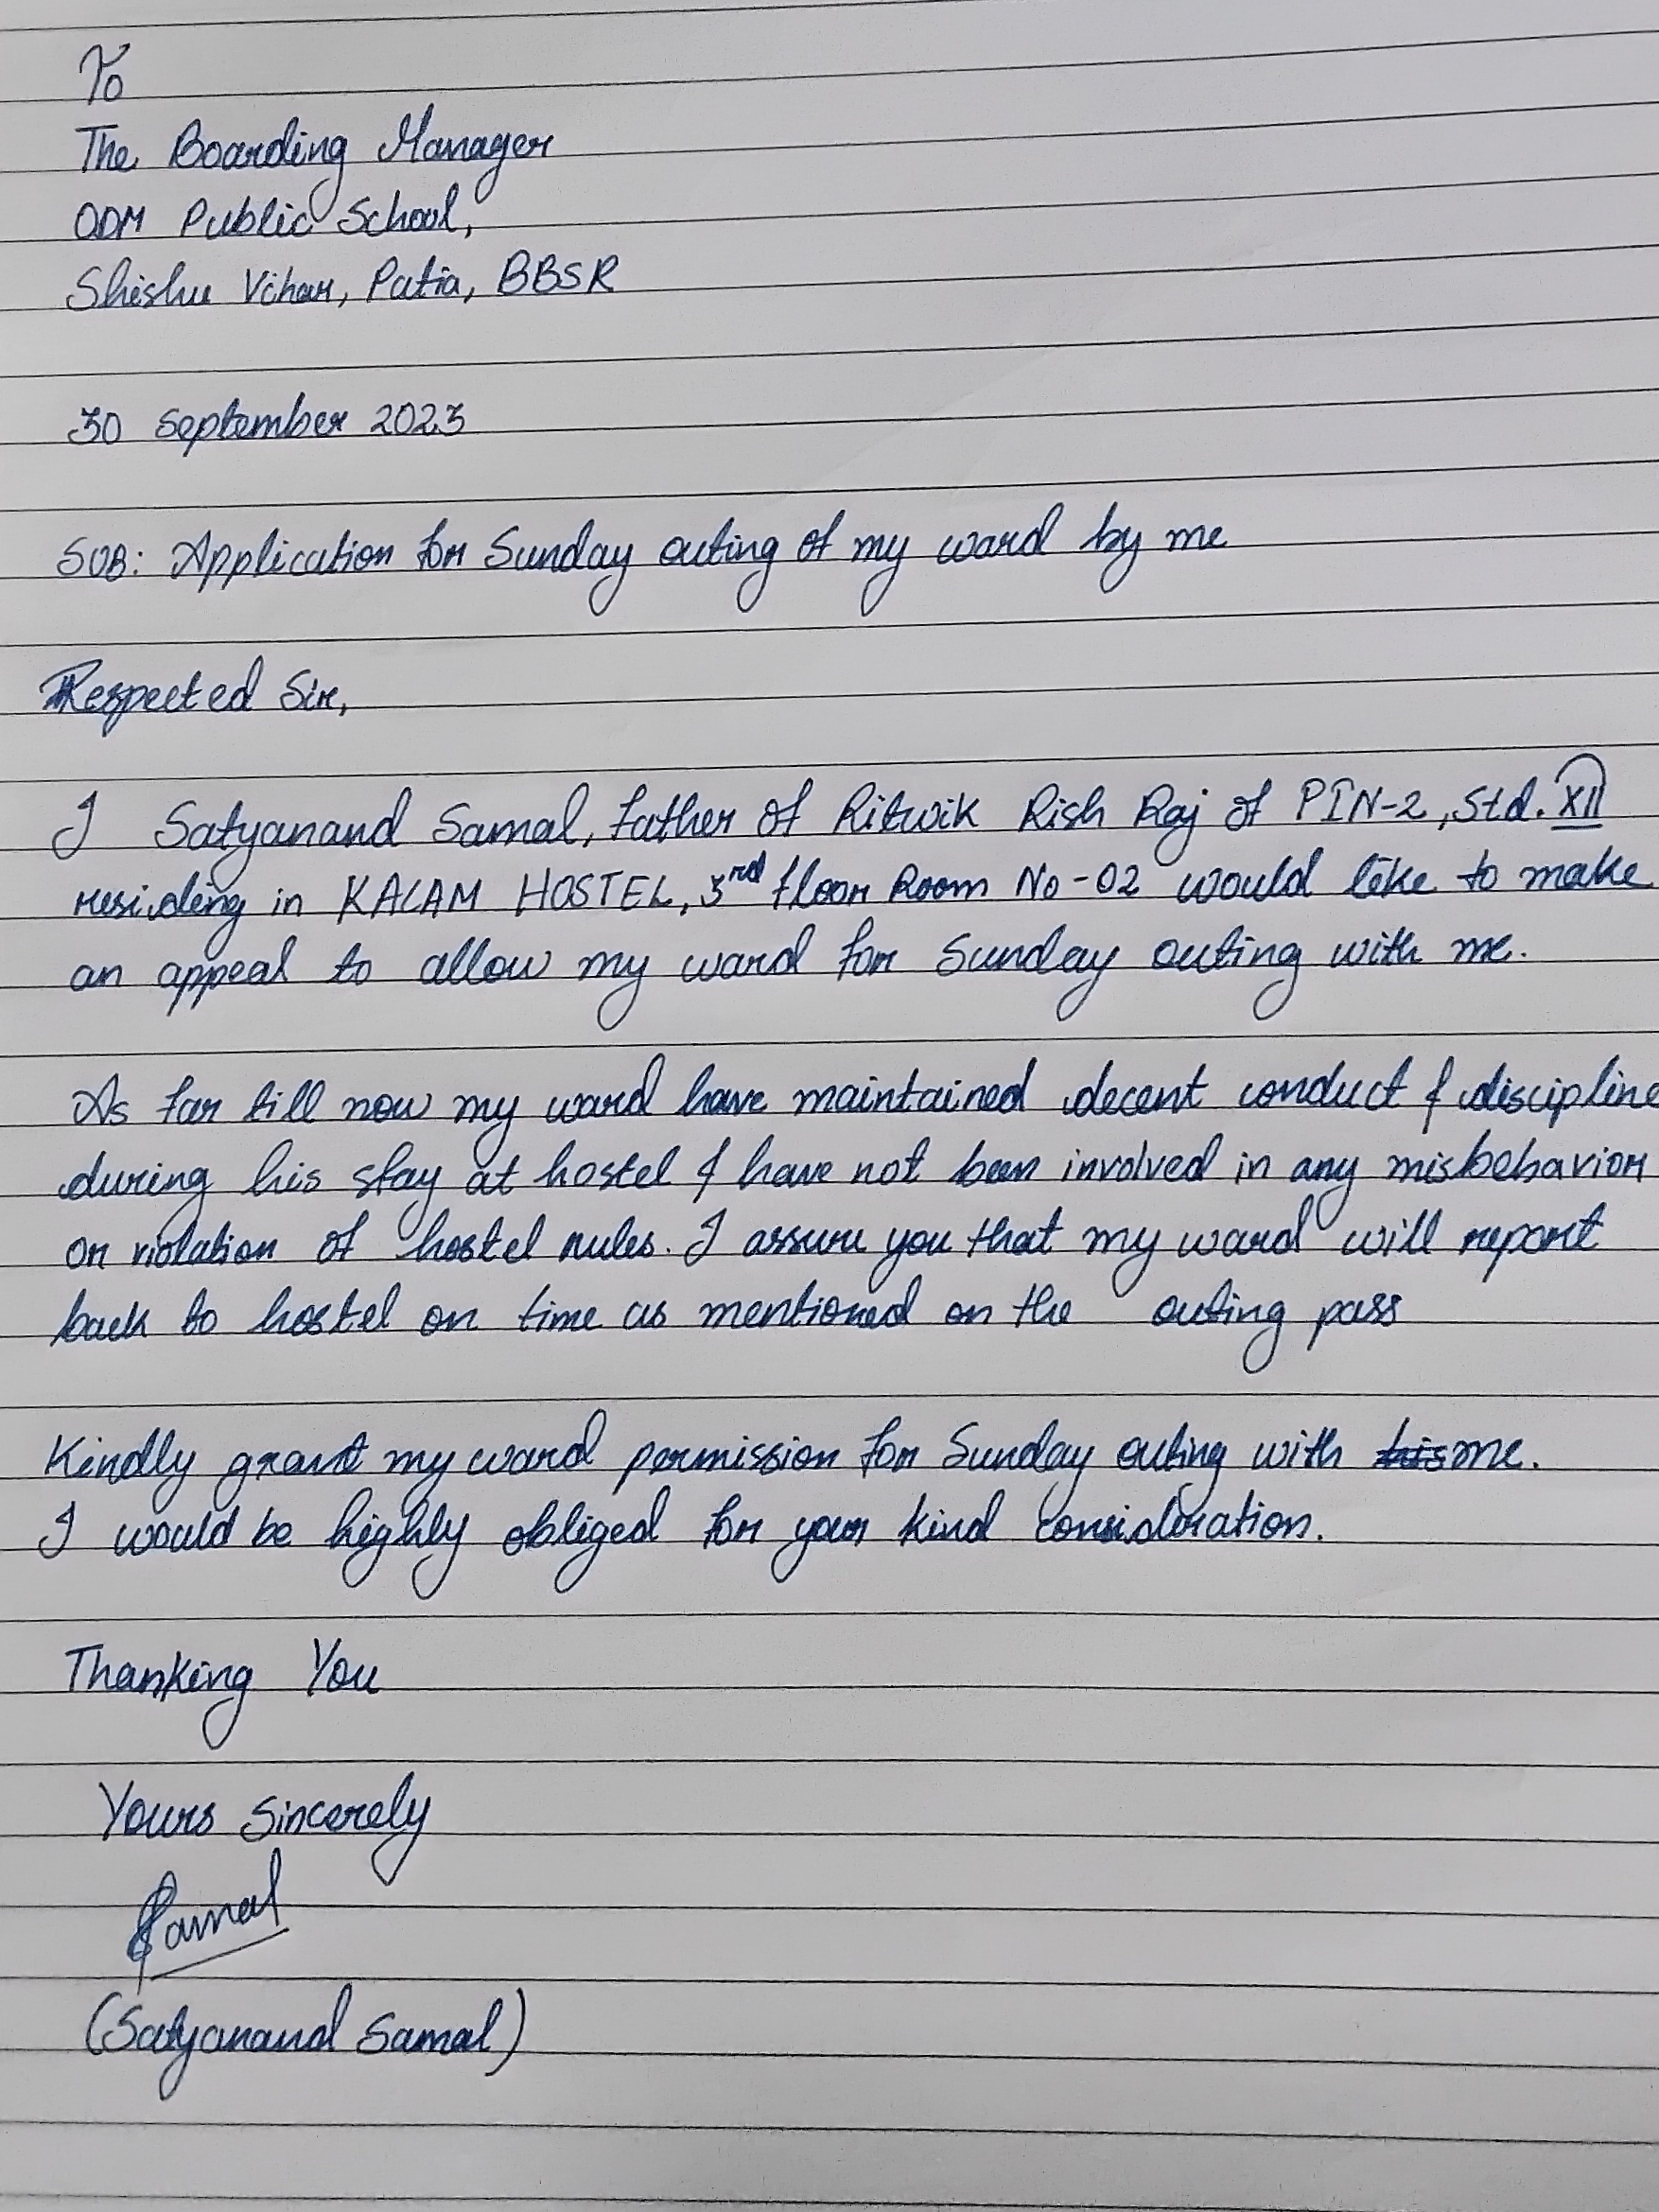 To
The Boarding Manager
ODM Public School,
Shishu Vihar, Patia, BBSR
30 September 2023
SUB: Application for Sunday outing of my ward by me
Respected Sir,
I Satyanand Samal, father of Ritwik Rish Raj of PIN-2, Std. XII
residing in KALAM HOSTEL, 3rd floor Room No-02 would like to make
an appeal to allow my ward for Sunday outing with me.
As far till now my ward have maintained decent conduct & discipline
during his stay at hostel & have not been involved in any misbehavior
or violation of hostel rules. I assure you that my ward will report
back to hostel on time as mentioned on the outing pass
Kindly grant my ward permission for Sunday outing with his me.
I would be highly obliged for your kind consideration.
Thanking You
Yours Sincerely
Samal
(Satyanand Samal)